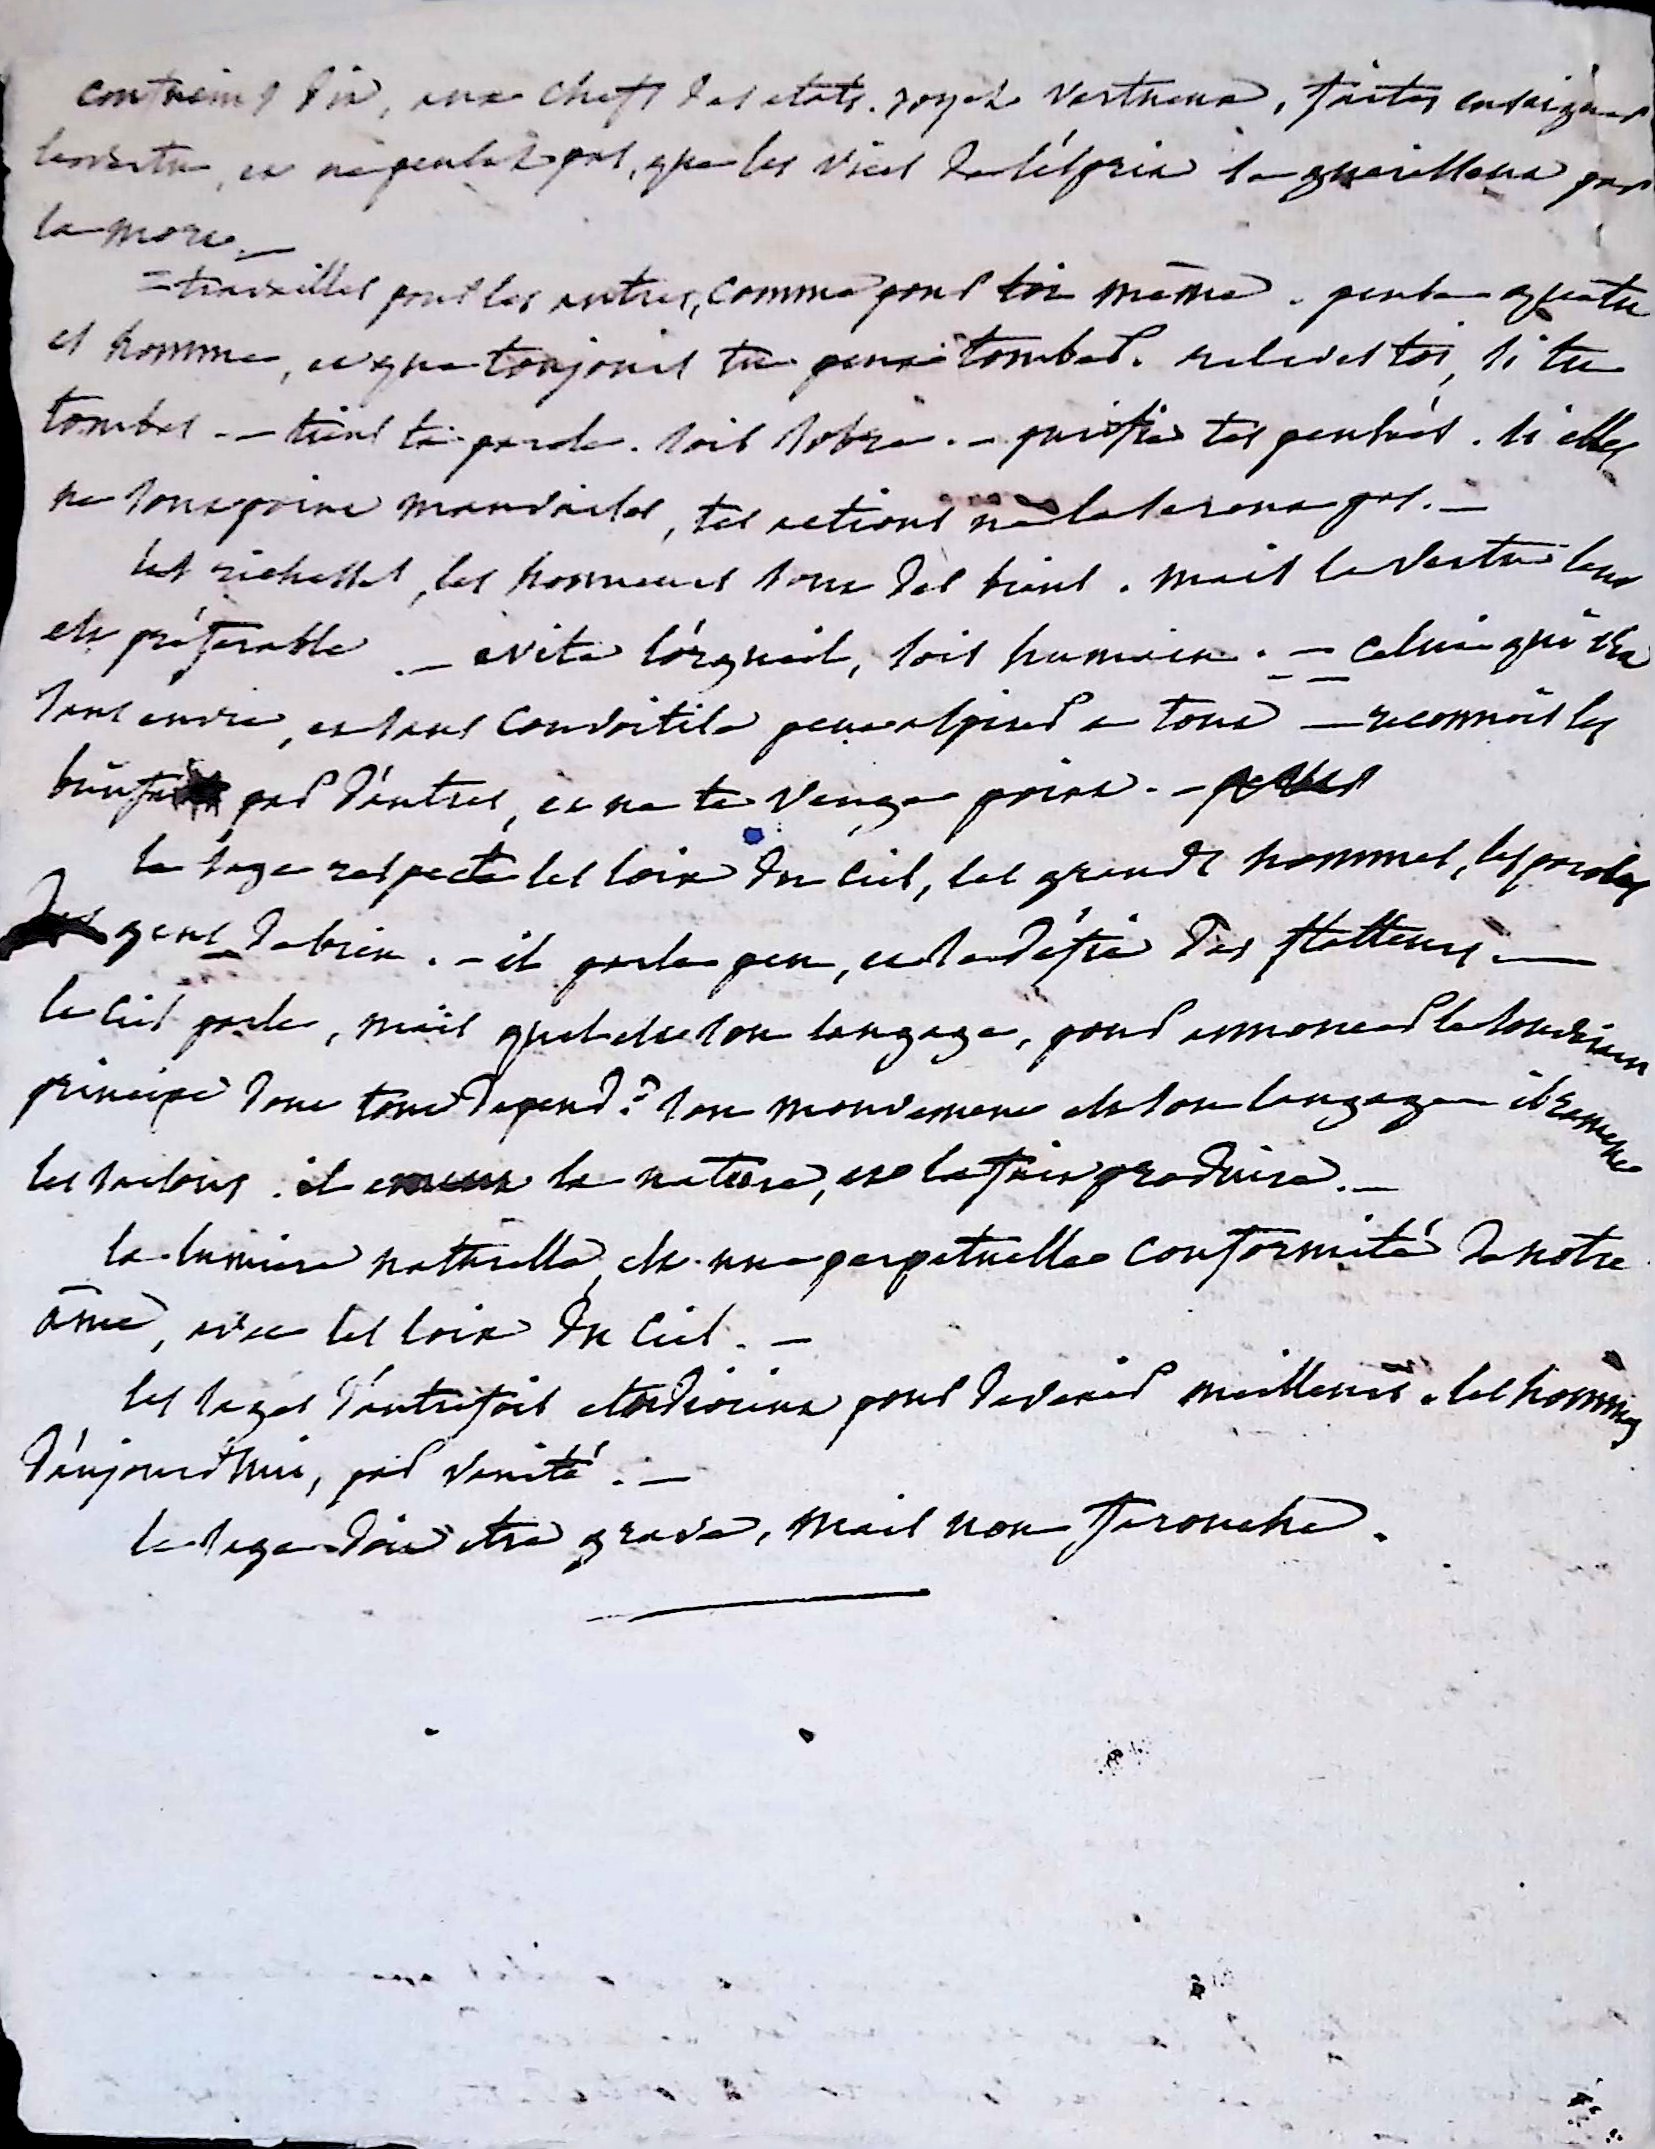 contraint dir, aux chefs des etats. soyez vertueux, faites enseigner
la vertu, et ne pensez pas, que les vices de l'ésprit se guerissent par
la mort. —
= travailles pour les autres, comme pour toi même. pense que tu
es homme, et que toujours tu peux tomber. releves toi, si tu
tombes. — tiens ta parole. sois sobre. — purifie tes pensées. si elles
ne sont point mauvaises, tes actions ne le seront pas. —
les richesses, les honneurs sont des biens. mais la vertu leur
est préferable. — evite l'orgueil, sois humain. — celui qui vit
sans envie, et sans convoitise peut aspirer a tout — reconnois les
bienfaits par d'autres, et ne te venge point. —
le sage respecte les loix du ciel, les grands hommes, les paroles
des gens de bien. — il parle peu, et se défie des flatteurs. —
le ciel parle, mais quel est son langage, pour annoncer le souverain
principe dont tout depend? son mouvement est son langage il ramene
les saisons. il emeut la nature, et la fait produire. —
la lumiere naturelle, est une perpetuelle conformité de notre
âme, avec les loix du ciel. —
les sages d'autrefois etudioient pour devenir meilleurs. les hommes
d'aujourd'hui, par vanité. —
le sage doit etre grave, mais non farouche.